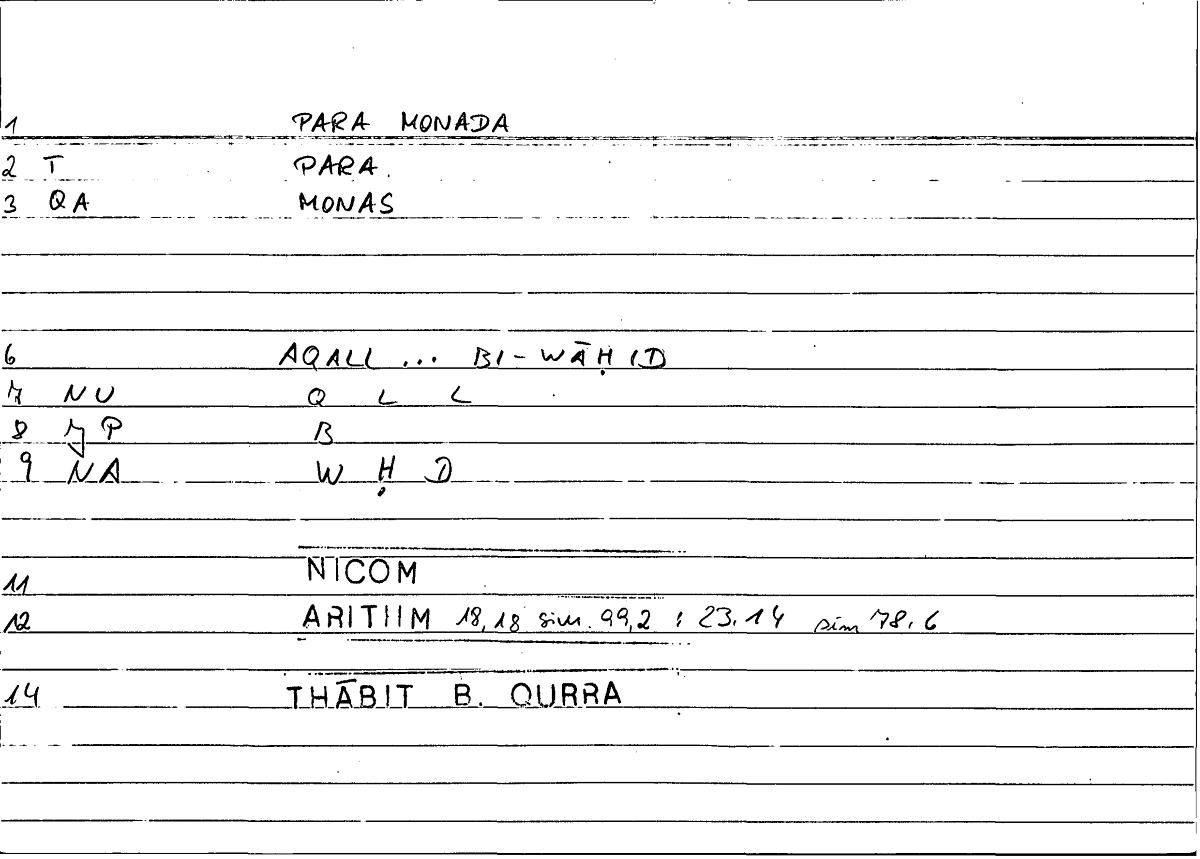 1 PARA MONADA
2 T PARA.
3 QA MONAS
6 AQALL ... BI-WĀḤID
7 NU Q L L
8 JP B
9 NA W Ḥ D
11 NICOM
12 ARITHM 18,18 sim. 99,2 ; 23.14 sim 78.6
14 THĀBIT B. QURRA